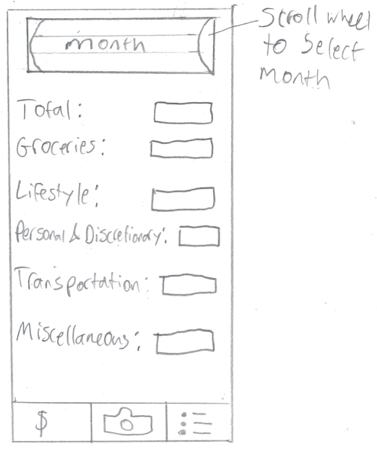 month
Scroll wheel
to Select
Month
Total:
Groceries:
Lifestyle:
Personal & Discretionary:
Transportation:
Miscellaneous:
$